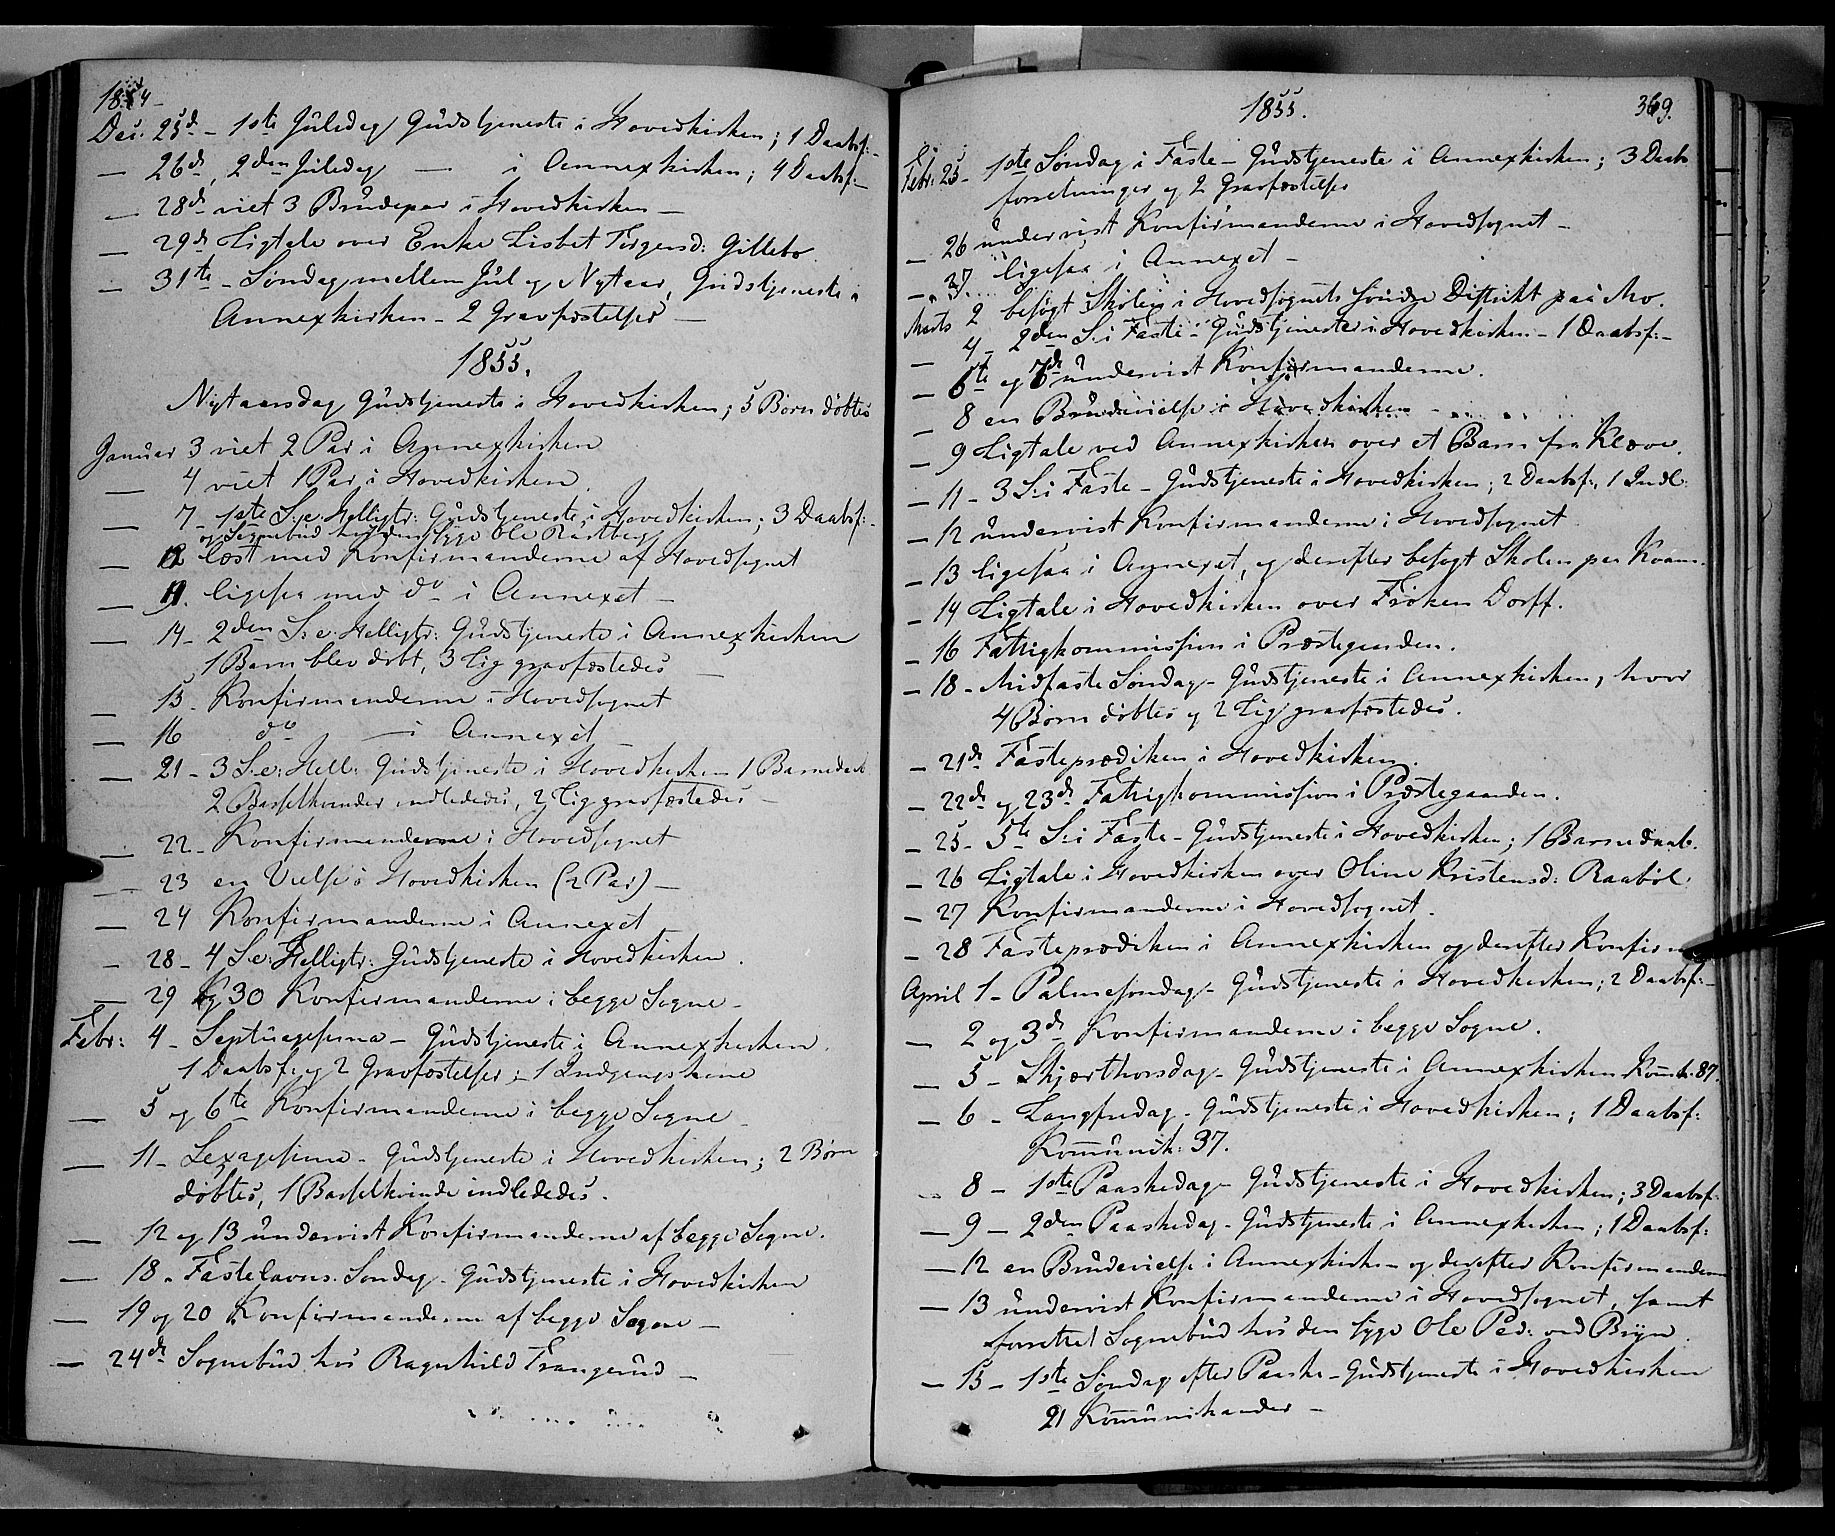 1854
Dec: 25de – 1ste Juledag Gudstjeneste i Hovedkirken; 1 Daabsf:
— 26de, 2den Juledag — i Annexkirken; 4 Daabsf:
— 28de viet 3 Brudepar i Hovedkirken –
— 29de Ligtale over Enke Lisbet Gillebo
— 31te – Søndag mellem Jul og Nytaar, Gudstjeneste i
Annexkirken – 2 Gravfæstelser –
1855.
Nytaarsdag, Gudstjeneste i Hovedkirken; 5 Børn døbtes
Januar 3 viet 2 Par i Annexkirken
— 4 viet 1 Par i Hovedkirken.
— 7 – 1ste S: e: Helligtr: Gudstjeneste i Hovedkirken; 3 Daabsf:
og Sognebud hos den syge Ole
— læst med Konfirmanderne af Hovedsognet
— ligesaa med do i Annexet –
— 14 – 2den S: e: Helligtr: Gudstjeneste i Annexkirken
1 Barn blev døbt, 3 Lig gravfæstedes –
— 15 – Konfirmanderne i Hovedsognet
— 16 do — i Annexet –
— 21 – 3 S: e: Hell: Gudstjeneste i Hovedkirken 1 Barnedaab
2 Barselkvinder indlededes, 2 Lig gravfæstedes –
— 22 – Konfirmanderne i Hovedsognet
— 23 en Vielse i Hovedkirken (2 Par) –
— 24 Konfirmanderne i Annexet
— 28 – 4 S: e: Helligtr: Gudstjeneste i Hovedkirken.
— 29 og 30 Konfirmanderne i begge Sogne –
Febr: 4 – Septuagesima – Gudstjeneste i Annexkirken.
1 Daabsf: og 2 Gravfæstelser; 1 Indgangskone
— 5 og 6te Konfirmanderne i begge Sogne –
— 11 – Sexagesima – Gudstjeneste i Hovedkirken; 2 Børn
døbtes, 1 Barselkvinde indlededes.
— 12 og 13 undervist Konfirmanderne af begge Sogne.
— 18 – Fastelavns-Søndag – Gudstjeneste i Hovedkirken
— 19 og 20 Konfirmanderne af begge Sogne –
— 24de Sognebud hos Ragnhild Trangerud –
1855.
369.
Febr: 25 – 1ste Søndag i Faste – Gudstjeneste i Annexkirken; 3 Daabs
forretninger og 2 Gravfæstelser
— 26 undervist Konfirmanderne i Hovedsognet –
— 27 ligesaa i Annexet –
Marts 2 besøgt Skolen i Hovedsognets søndre Distrikt paa Mo.
— 4 – 2den S: i Faste – Gudstjeneste i Hovedkirken – 1 Daabsf: –
— 6te og 7de undervist Konfirmanderne.
— 8 en Brudevielse i Hovedkirken –
— 9 Ligtale ved Annexkirken over et Barn fra Kleve.
— 11 – 3 S: i Faste – Gudstjeneste i Hovedkirken; 2 Daabsf:, 1 Indl:
— 12 undervist Konfirmanderne i Hovedsognet
— 13 ligesaa i Annexet, og derefter besøgt Skolen paa Kvam.
— 14 Ligtale i Hovedkirken over Frøken Dorff.
— 16 Fattigkommission i Præstegaarden.
— 18 – Midfaste Søndag – Gudstjeneste i Annexkirken, hvor
4 Børn døbtes og 2 Lig gravfæstedes.
— 21de Fasteprædiken i Hovedkirken.
— 22de og 23de Fattigkommission i Præstegaarden.
— 25 – 5te S: i Faste – Gudstjeneste i Hovedkirken; 1 Barnedaab.
— 26 Ligtale i Hovedkirken over Oline Kristensd: Raabøl
— 27 Konfirmanderne i Hovedsognet.
— 28 Fasteprædiken i Annexkirken og derefter Konfirm
April 1 – Palmesøndag – Gudstjeneste i Hovedkirken; 2 Daabsf: –
— 2 og 3de Konfirmanderne i begge Sogne.
— 5 – Skjærthorsdag – Gudstjeneste i Annexkirken Komk: 87.
— 6 – Langfredag – Gudstjeneste i Hovedkirken; 1 Daabsf:
Kommunik: 37.
— 8 – 1ste Paaskedag – Gudstjeneste i Hovedkirken; 3 Daabsf:
— 9 – 2den Paaskedag – Gudstjeneste i Annexkirken; 1 Daabsf:
— 12 en Brudevielse i Annexkirken og derefter Konfirmanderne
— 13 undervist Konfirmanderne i Hovedsognet, samt
forrettet Sognebud hos den syge Ole Ped: ved Bryn.
— 15 – 1ste Søndag efter Paaske – Gudstjeneste i Hovedkirken
21 Kommunikander –